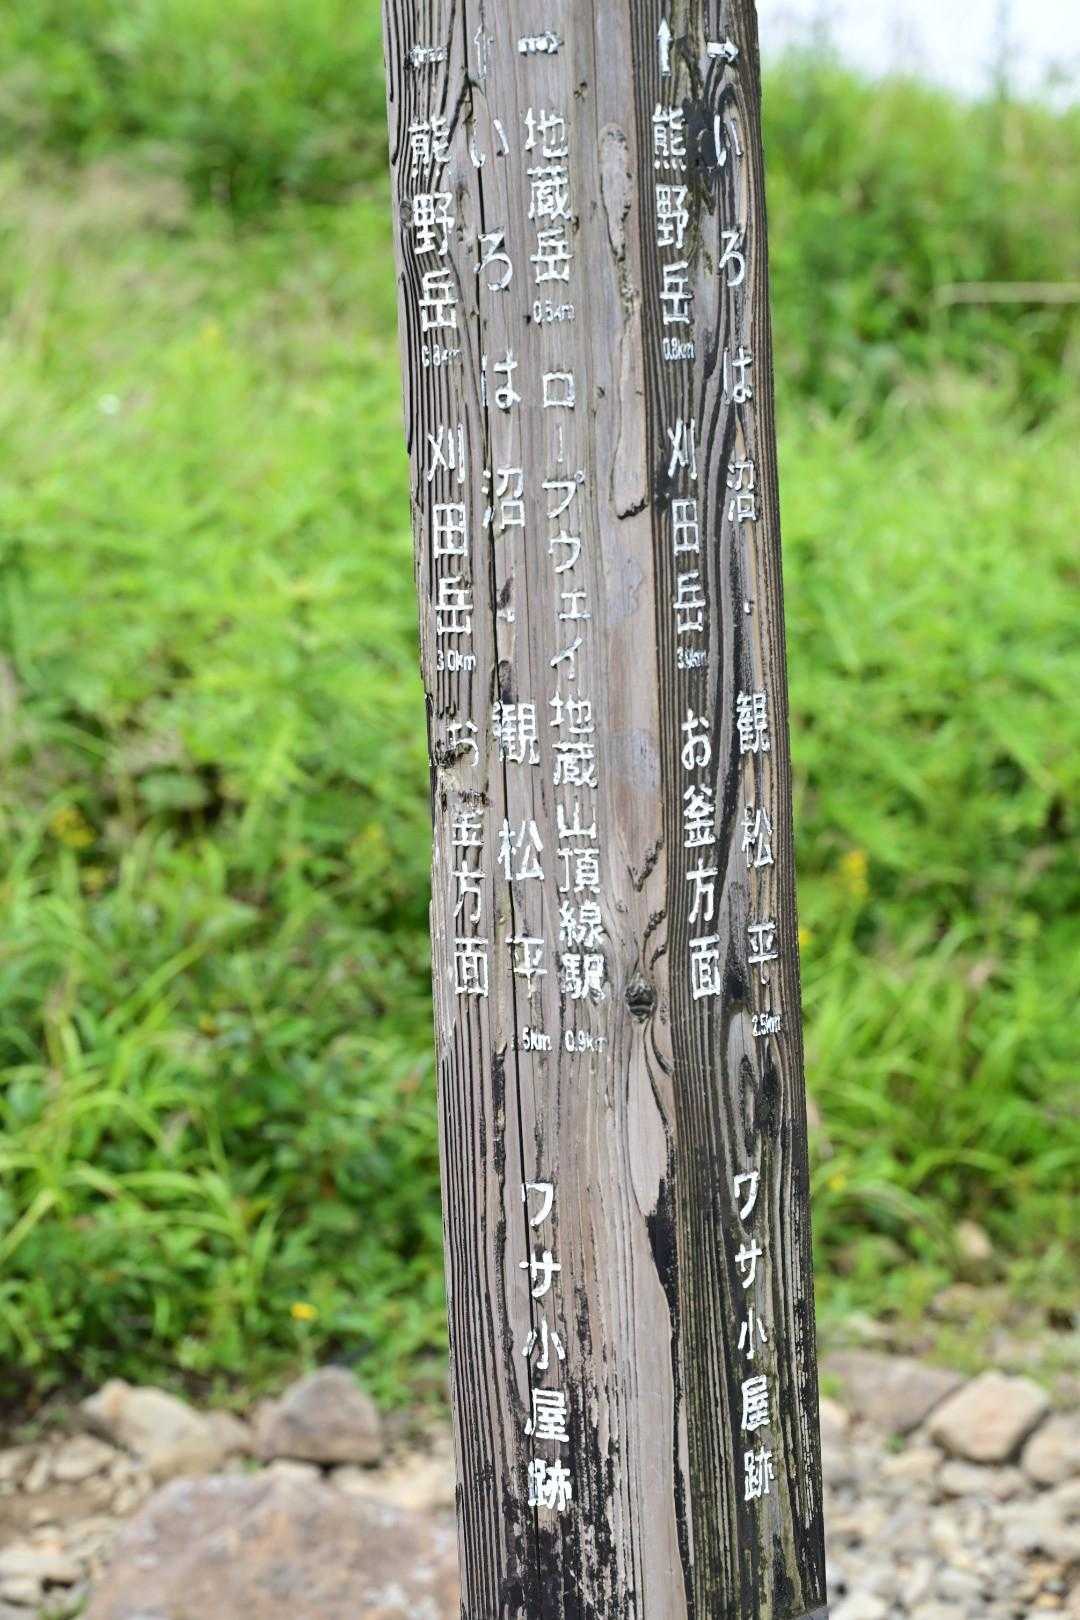 → いろは沼・観松平 2.5km
↑ 熊野岳 0.8km 刈田岳 お釜方面
ワサ小屋跡
→ 地蔵岳 0.5km ロープウェイ地蔵山頂線駅 0.9km
↑ いろは沼・観松平
← 熊野岳 0.8km 刈田岳 3.0km お釜方面
ワサ小屋跡